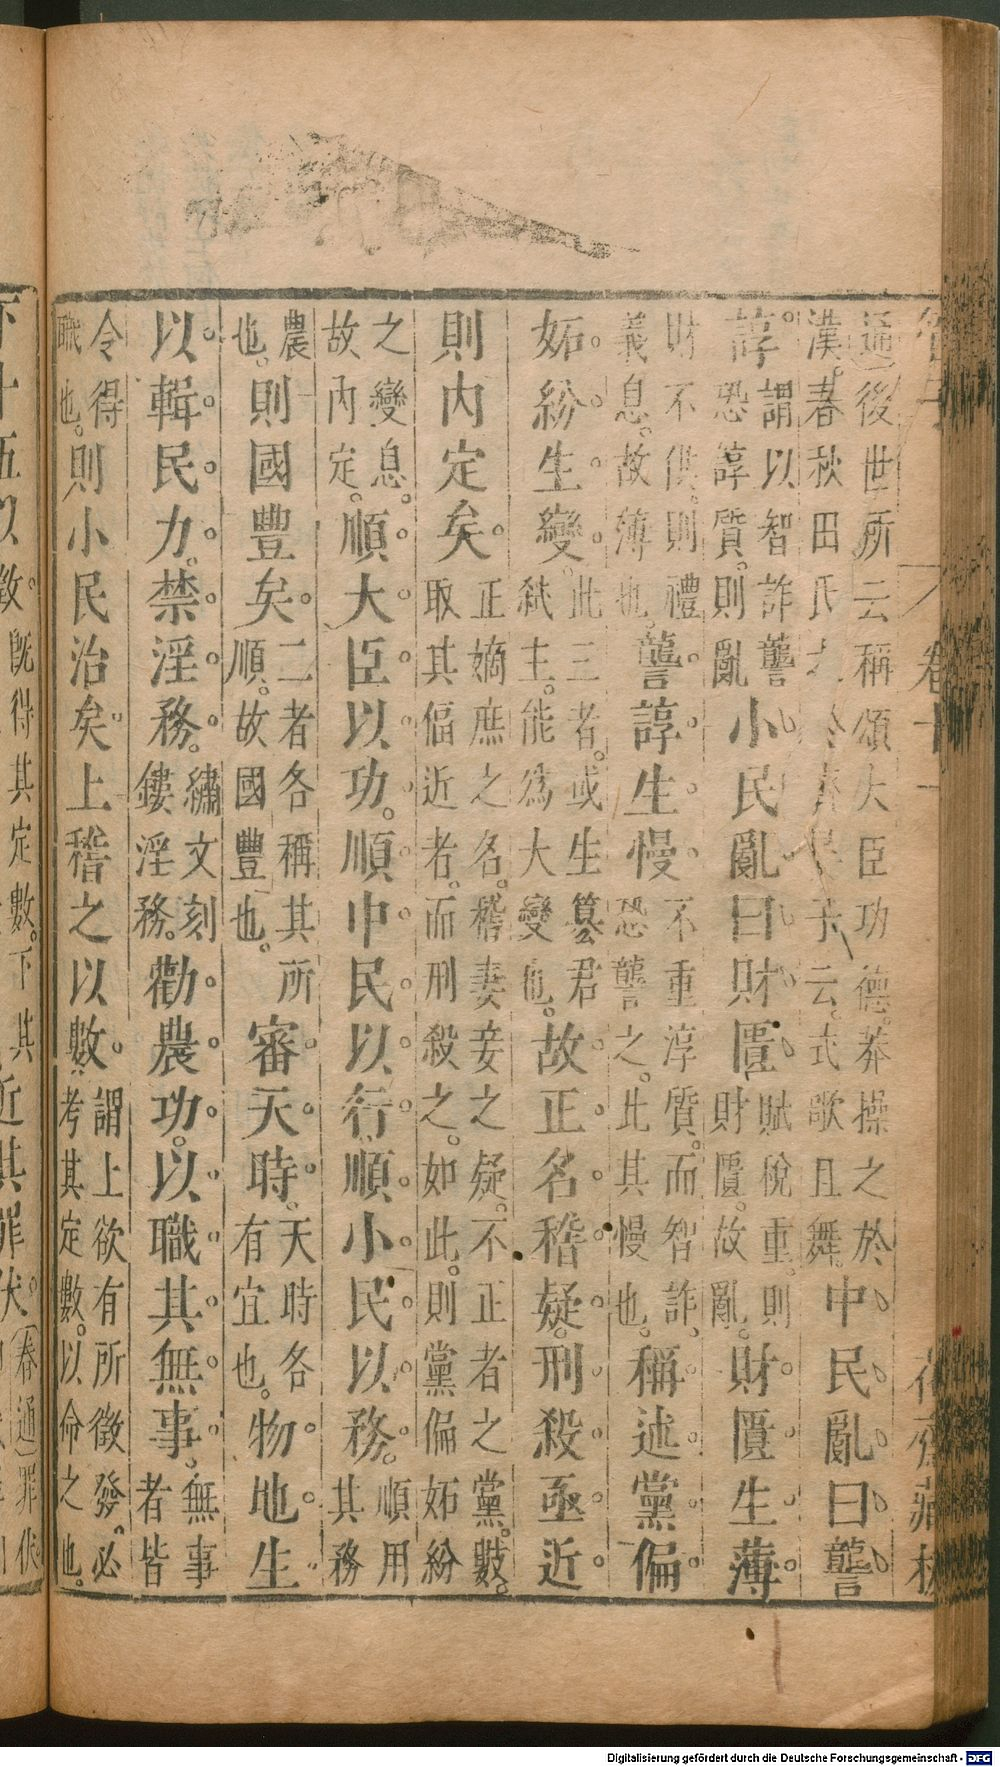 管子 卷十一 花齋藏板
通後世所云稱頌大臣功德莽操之於
漢。春秋田氏之於齊晏子云。式歌且舞。中民亂曰讋
諄。謂以智詐讋恐諄質。則亂小民亂曰財匱賦稅重。則財匱。故亂。財匱生薄
財不供。則禮義息。故薄也。讋諄生慢不重淳質。而智詐恐讋之。此其慢也。稱述黨偏
妬紛生變。此三者。或生篡君弒主。能為大變也。故正名稽疑。刑殺亟近
則內定矣。正嫡庶之名。稽妻妾之疑。不正者之黨。數取其偪近者。而刑殺之。如此。則黨偏妬紛
之變息。故內定。順大臣以功。順中民以行。順小民以務。順用其務
農也。則國豐矣。二者各稱其所順。故國豐也。審天時。天時各有宜也。物地生
以輯民力。禁淫務。繡文刻鏤淫務。勸農功。以職其無事。無事者皆
令得職也。則小民治矣。上稽之以數。謂上欲有所徵發。必考其定數。以命之也。
下十伍以徵。既得其定數。下其
近其罪伏。春通罪伏
Digitalisierung gefördert durch die Deutsche Forschungsgemeinschaft - DFG